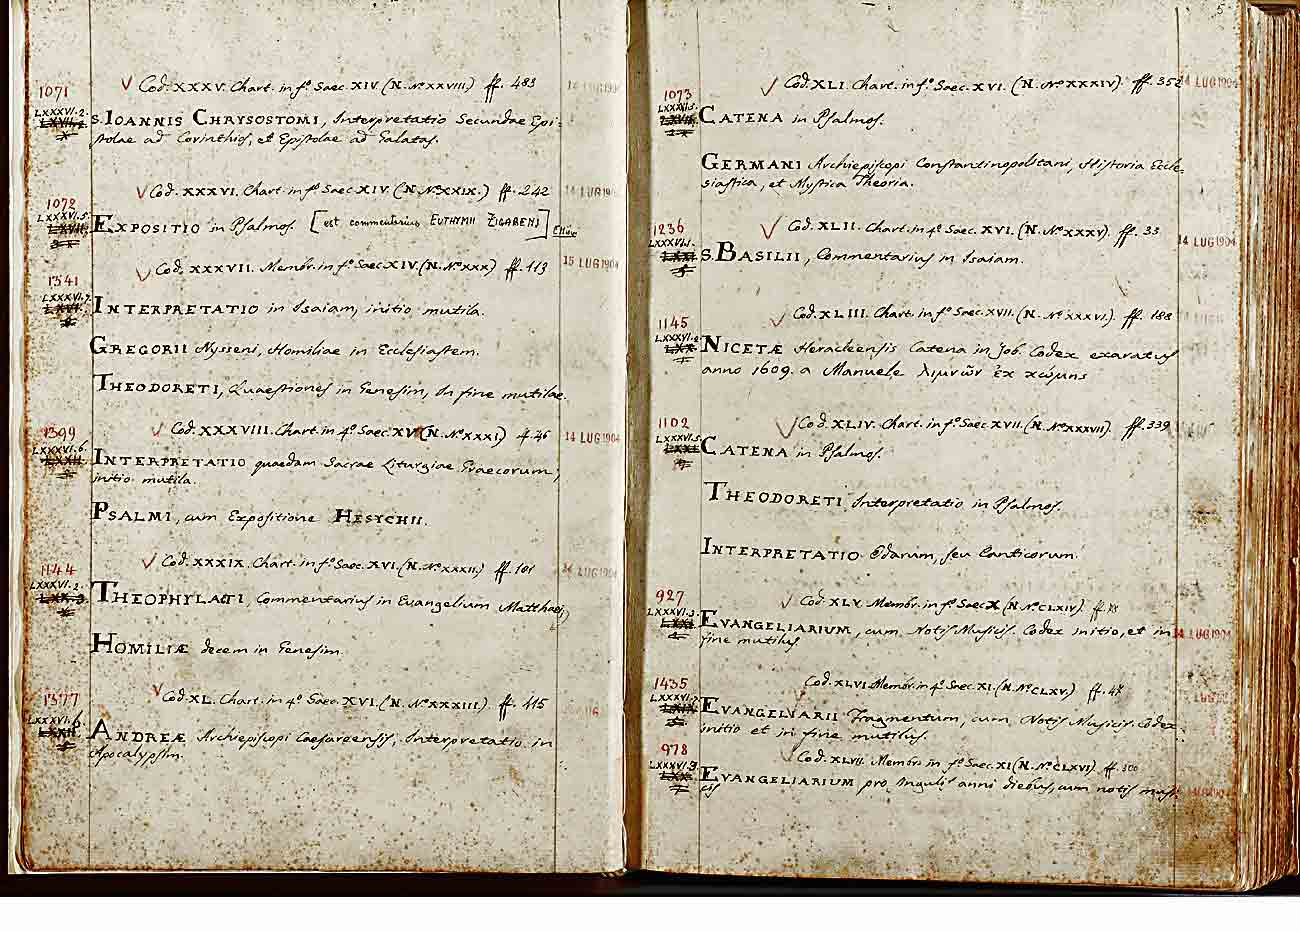 1071
LXXXVI.2.
Cod. XXXV. Chart. in f.º Saec. XIV. (N. Nº XXVIII) ff. 483
S. IOANNIS CHRYSOSTOMI, Interpretatio Secundae Epi-
stolae ad Corinthios, et Epistolae ad Galatas.
1072
LXXXVI.5.
Cod. XXXVI. Chart. in f.º Saec. XIV. (N. Nº XXIX.) ff. 242
14 LUG 190
EXPOSITIO in Psalmos. [est commentarius EUTHYMII ZIGABENI]
1341
LXXXVI.7.
Cod. XXXVII. Membr. in f.º Saec. XIV. (N. Nº XXX) ff. 113
15 LUG 1904
INTERPRETATIO in Isaiam, initio mutila.
GREGORII Nysseni, Homiliae in Ecclesiastem.
THEODORETI, Quaestiones in Genesim, In fine mutilae.
1399
LXXXVI.6.
Cod. XXXVIII. Chart. in 4º Saec. XV (N. Nº XXXI) ff. 46
14 LUG 1904
INTERPRETATIO quaedam Sacrae Liturgiae Graecorum,
initio mutila.
PSALMI, cum Expositione HESYCHII.
1144
LXXXVI.3.
Cod. XXXIX. Chart. in f.º Saec. XVI. (N. Nº XXXII.) ff. 101
14 LUG 1904
THEOPHYLACTI, Commentarius in Evangelium Matthaei,
HOMILIÆ decem in Genesim.
1377
LXXXVI.6.
Cod. XL. Chart. in 4º Saec. XVI. (N. Nº XXXIII.) ff. 415
ANDREÆ Archiepiscopi Caesareensis, Interpretatio in
Apocalypsim.
5
1073
LXXXVI.5.
Cod. XLI. Chart. in f.º Saec. XVI. (N. Nº XXXIV.) ff. 352
14 LUG 1904
CATENA in Psalmos.
GERMANI Archiepiscopi Constantinopolitani, Historia Eccle-
siastica, et Mystica Theoria.
1236
LXXXVI.1.
Cod. XLII. Chart. in 4º Saec. XVI. (N. Nº XXXV). ff. 33
14 LUG 1904
S. BASILII, Commentarius in Isaiam.
1145
LXXXVI.2
Cod. XLIII. Chart. in f.º Saec. XVII. (N. Nº XXXVI.) ff. 188
NICETÆ Heracleensis Catena in Job. Codex exaratus
anno 1609. a Manuele λιμνῶν ἐκ χώμης
1102
LXXXVI.5.
Cod. XLIV. Chart. in f.º Saec. XVII. (N. Nº XXXVII). ff. 339
CATENA in Psalmos.
THEODORETI Interpretatio in Psalmos.
INTERPRETATIO Odarum, seu Canticorum.
927
LXXXVI.3.
Cod. XLV. Membr. in f.º Saec. X (N. Nº CLXIV). ff.
14 LUG 1904
EVANGELIARIUM, cum Notis Musicis. Codex initio, et in
fine mutilus.
1435
LXXXVI.7.
Cod. XLVI. Membr. in 4º Saec. XI. (N. Nº CLXV.) ff. 48
LUG
EVANGELIARII Fragmentum, cum Notis Musicis. Codex
initio et in fine mutilus.
978
LXXXVI.3
Cod. XLVII. Membr. in f.º Saec. XI (N. Nº CLXVI) ff. 300
EVANGELIARIUM pro singulis anni diebus, cum notis musi-
cis